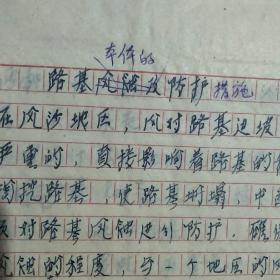 本体的
路基风蚀及防护措施
在风沙地区，风对路基边坡
严重的，直接影响着路基的
掏挖路基，使路基坍塌，中
对路基风蚀进行防护。
风蚀的程度，当一个地区的